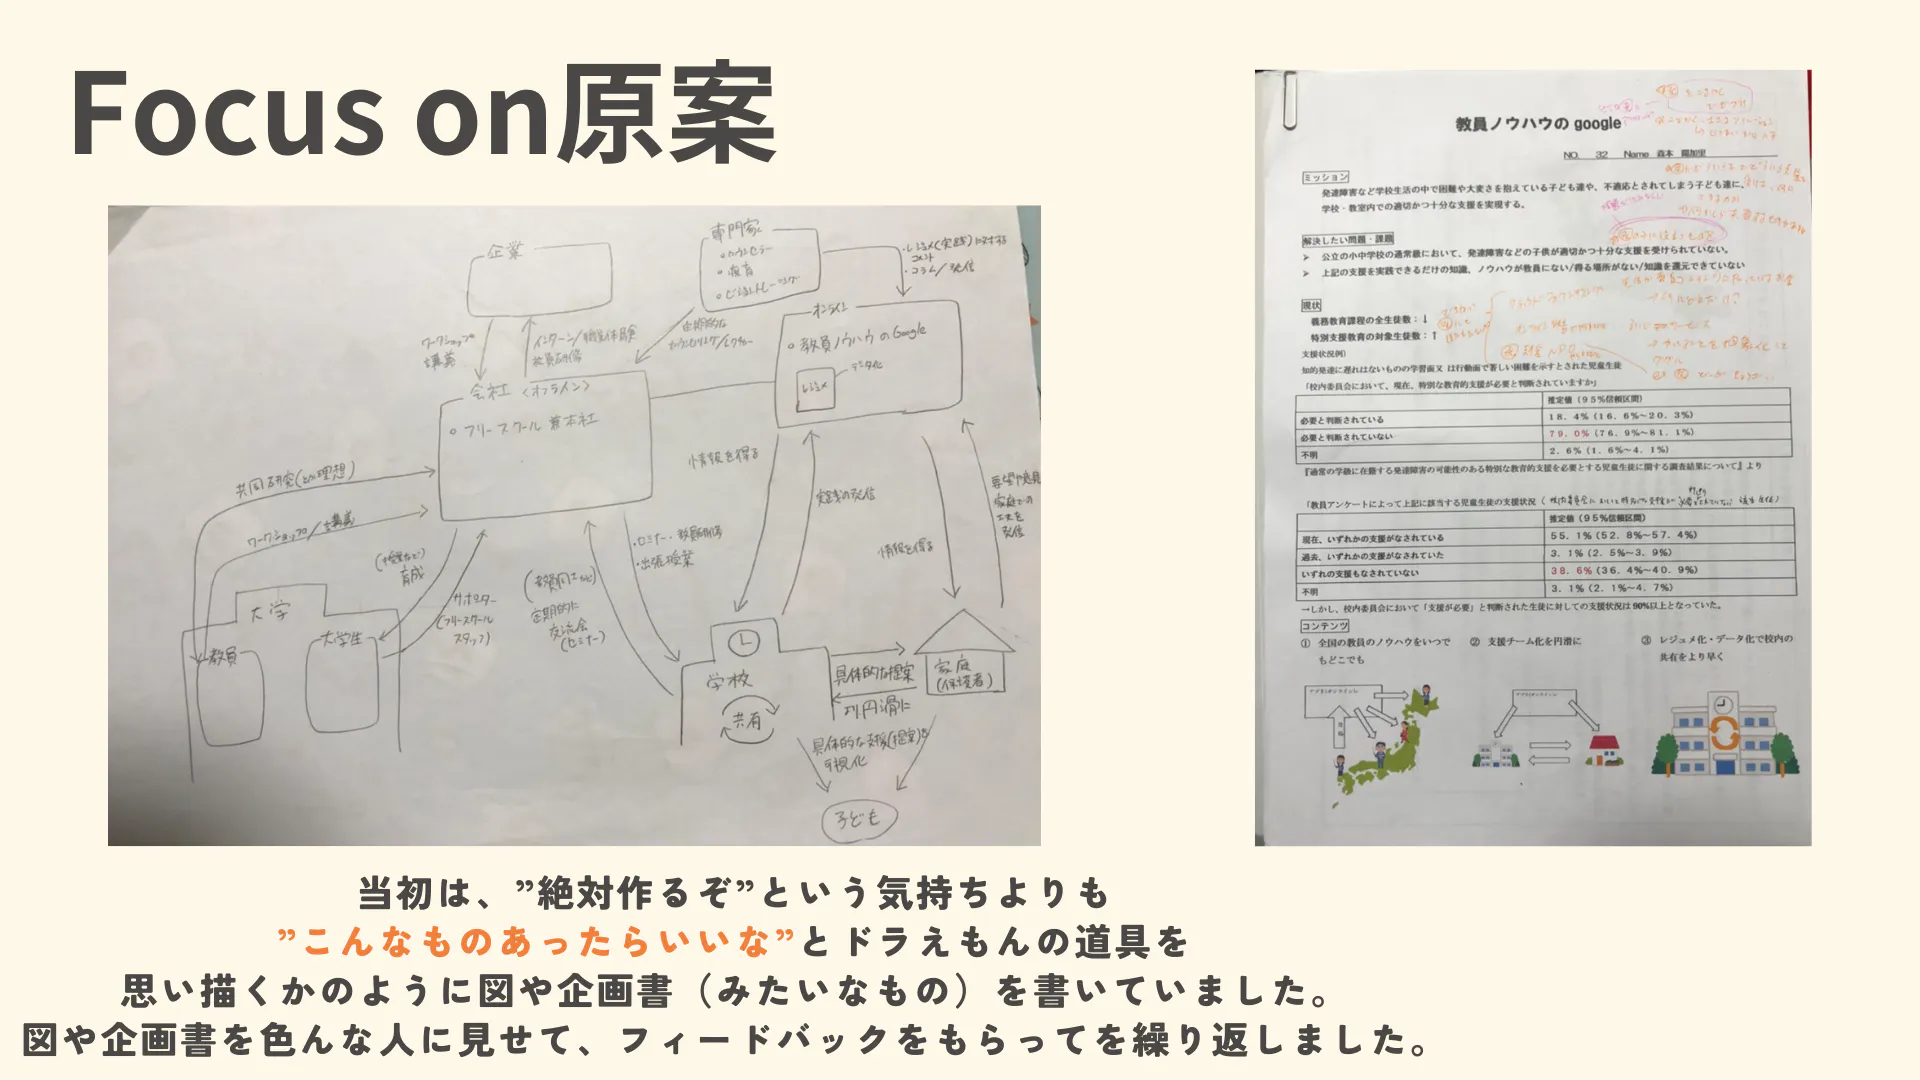 Focus on原案
企業
専門家
・カウンセラー
・療育
・ビジョントレーニング
・レジュメ(実践)に対する
コメント
・コラム/発信
オンライン
・教員ノウハウのGoogle
レジュメ
データ化
ワークショップ
講義
インターン/職業体験
教員研修
定期的な
会社〈オフライン〉
・フリースクール兼本社
共同研究(とか理想)
ワークショップ/講義
(授業など)
育成
サポーター
(フリースクール
スタッフ)
定期的に
交流会
(セミナー)
・セミナー・教員研修
・出張授業
情報を得る
実践の発信
情報を得る
要望や意見
家庭での
工夫を
発信
大学
教員
大学生
学校
共有
具体的な提案
より円滑に
家庭
(保護者)
具体的な支援(提案)を
可視化
子ども
教員ノウハウの google
NO. 32 Name 森本 陽加里
ミッション
発達障害など学校生活の中で困難や大変さを抱えている子ども達や、不適応とされてしまう子ども達に、
学校・教室内での適切かつ十分な支援を実現する。
解決したい問題・課題
➢ 公立の小中学校の通常級において、発達障害などの子供が適切かつ十分な支援を受けられていない。
➢ 上記の支援を実践できるだけの知識、ノウハウが教員にない/得る場所がない/知識を還元できていない
現状
義務教育課程の全生徒数：↓
特別支援教育の対象生徒数：↑
支援状況例）
知的発達に遅れはないものの学習面又は行動面で著しい困難を示すとされた児童生徒
「校内委員会において、現在、特別な教育的支援が必要と判断されていますか」
推定値（95%信頼区間）
必要と判断されている 18.4%（16.6%～20.3%）
必要と判断されていない 79.0%（76.9%～81.1%）
不明 2.6%（1.6%～4.1%）
『通常の学級に在籍する発達障害の可能性のある特別な教育的支援を必要とする児童生徒に関する調査結果について』より
「教員アンケートによって上記に該当する児童生徒の支援状況
推定値（95%信頼区間）
現在、いずれかの支援がなされている 55.1%（52.8%～57.4%）
過去、いずれかの支援がなされていた 3.1%（2.5%～3.9%）
いずれの支援もなされていない 38.6%（36.4%～40.9%）
不明 3.1%（2.1%～4.7%）
→しかし、校内委員会において「支援が必要」と判断された生徒に対しての支援状況は90%以上となっていた。
コンテンツ
① 全国の教員のノウハウをいつで
もどこでも
② 支援チーム化を円滑に
③ レジュメ化・データ化で校内の
共有をより早く
当初は、”絶対作るぞ”という気持ちよりも
”こんなものあったらいいな”とドラえもんの道具を
思い描くかのように図や企画書（みたいなもの）を書いていました。
図や企画書を色んな人に見せて、フィードバックをもらってを繰り返しました。